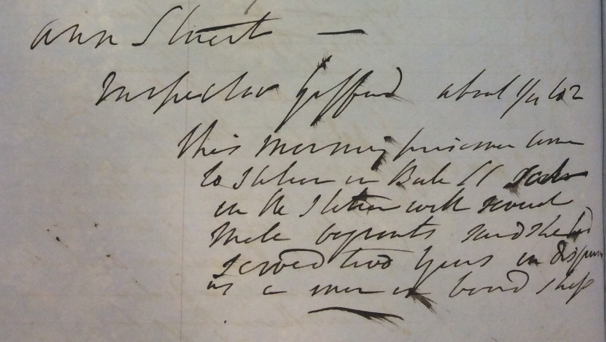 Ann Stuart —
Inspector Gifford about ¼ to 2
this morning prisoner came
to Station in Bale St
in the Station with several
Male vagrants said she had
served two years in disguise
as a man on board ship